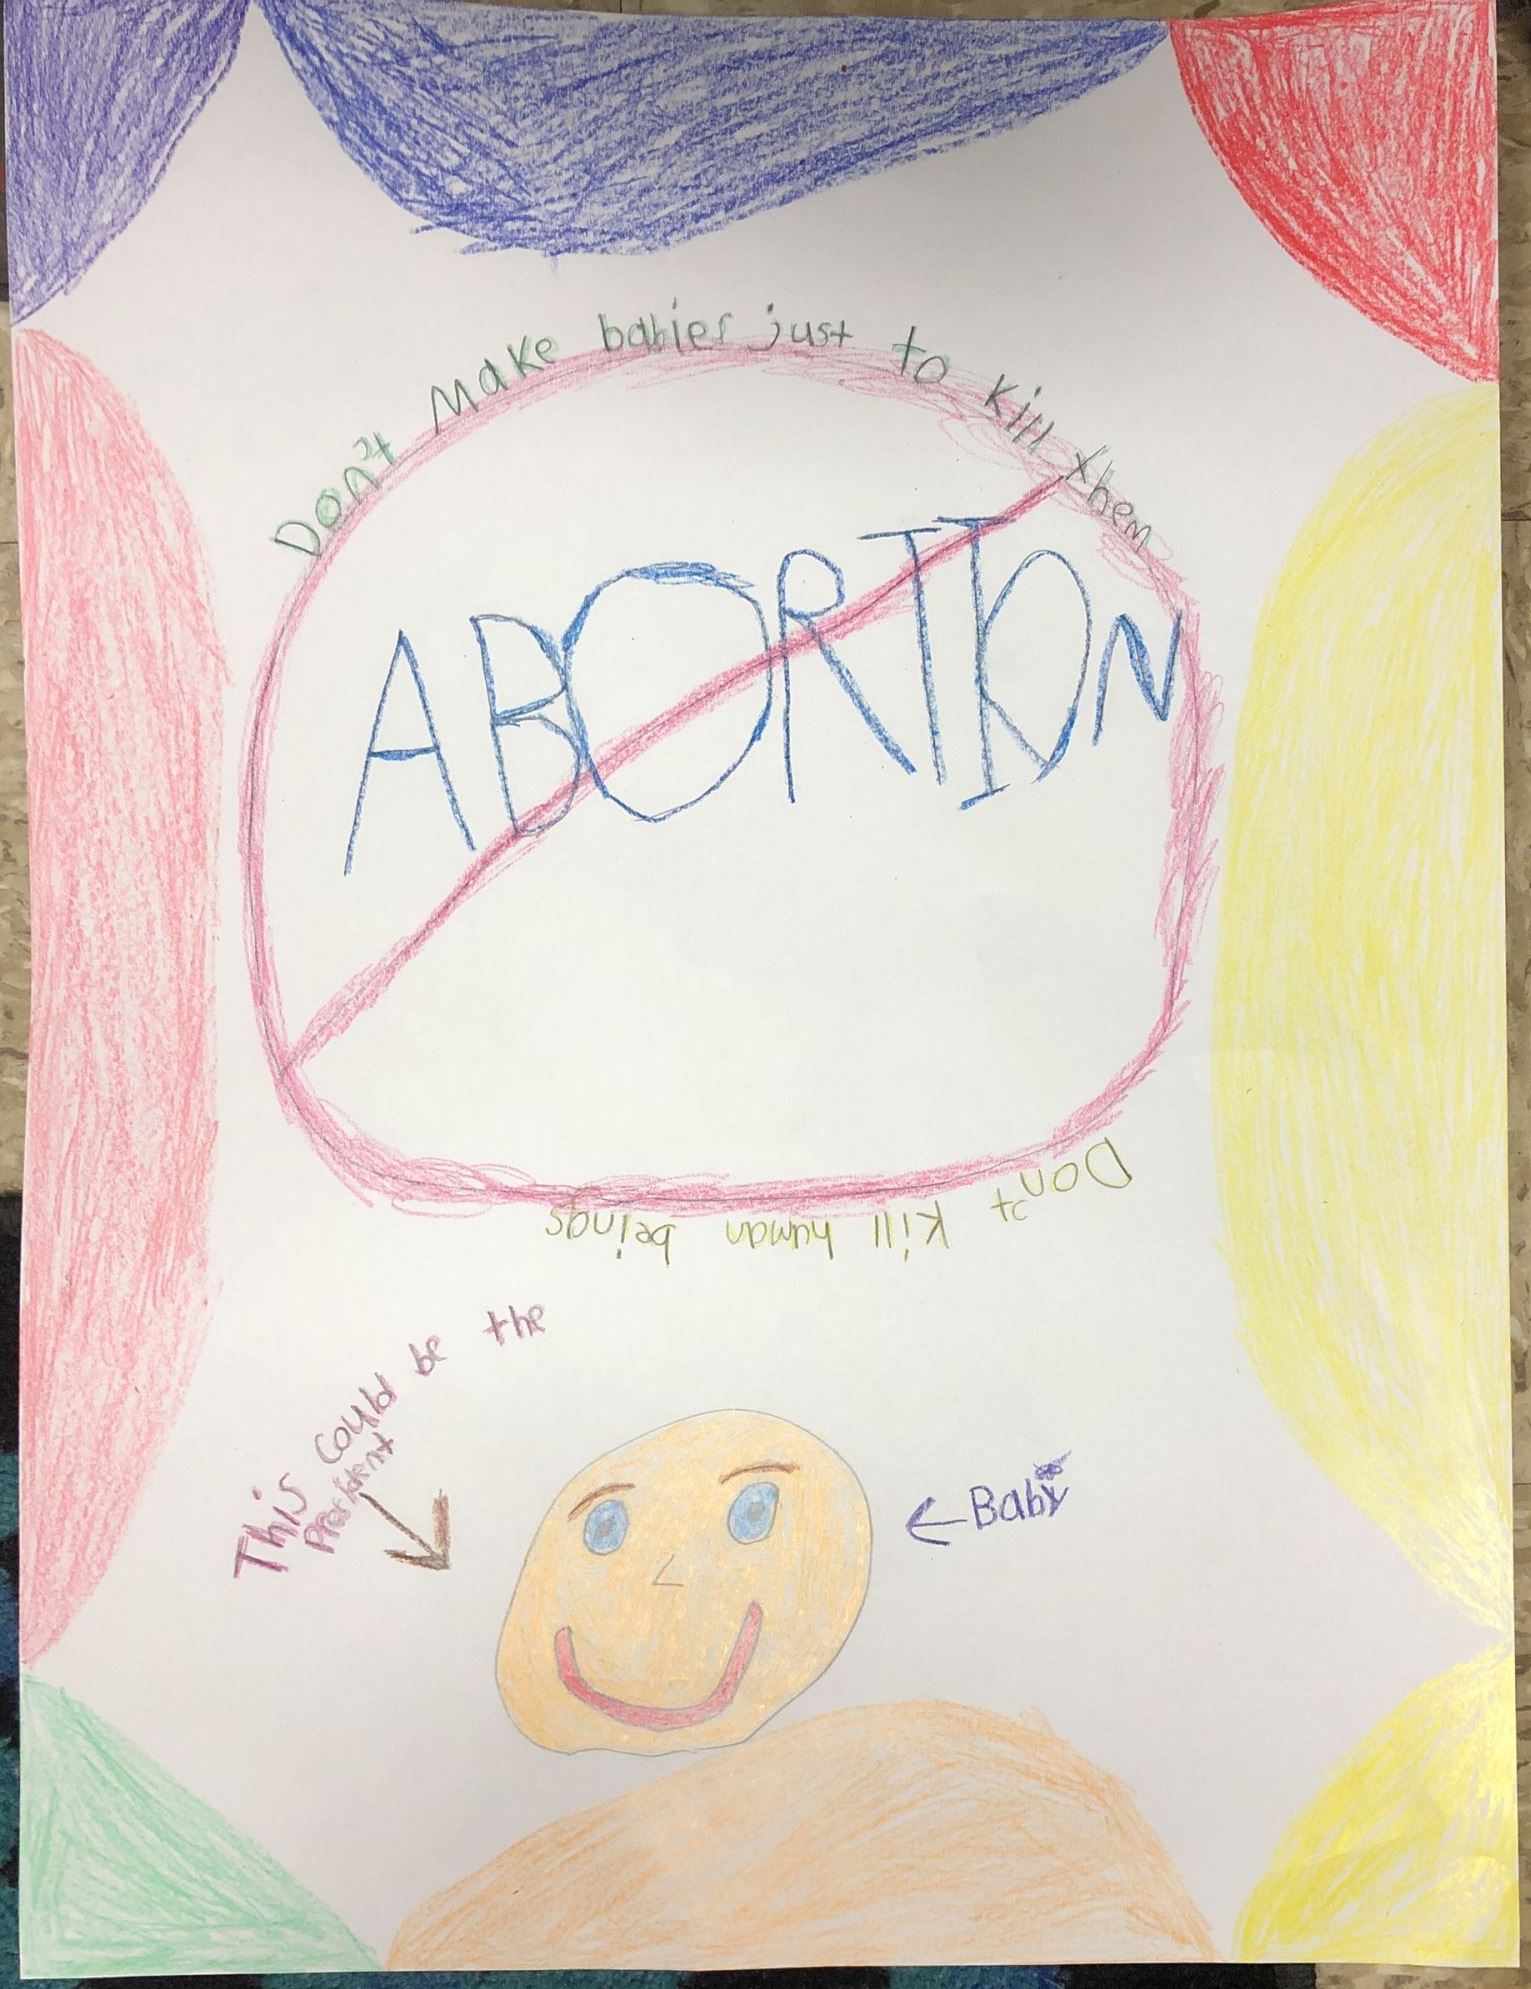 Don't Make babies just to kill them
ABORTION
Don't kill human beings
This could be the
President
Baby